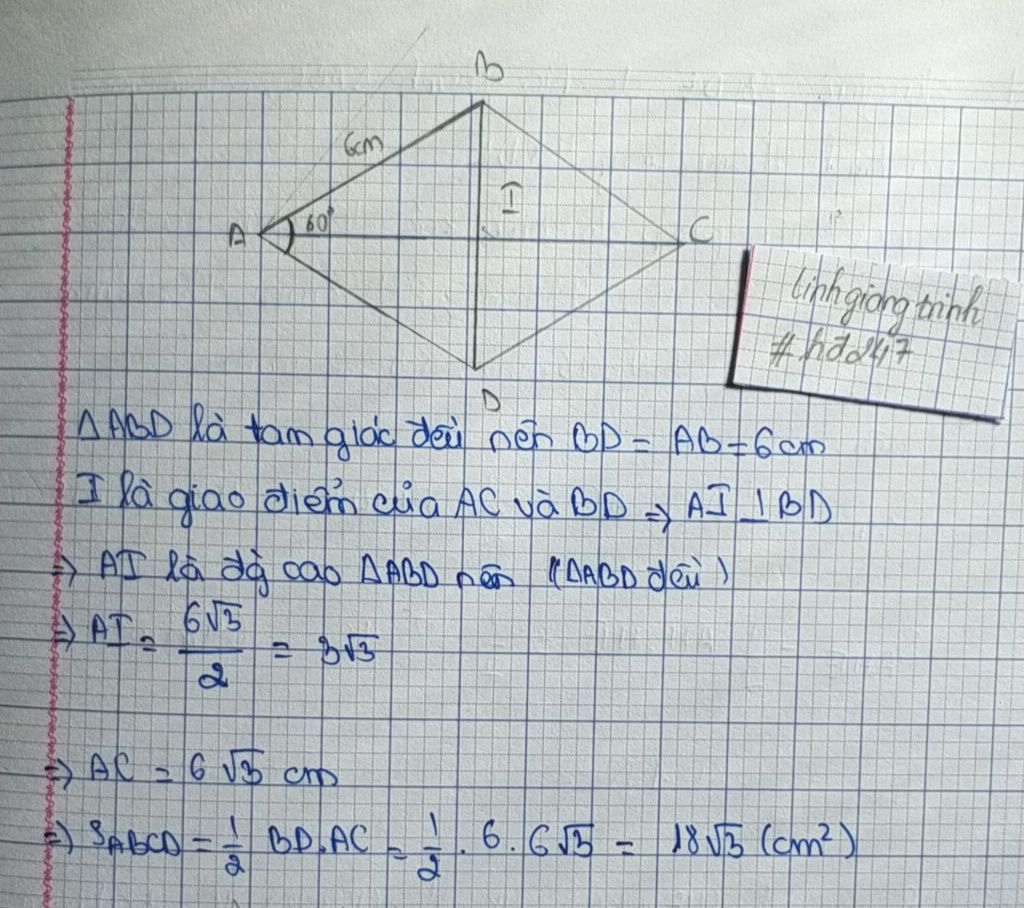 B
6cm
I
60°
A
C
linhgiangtrinh
#hđ247
D
ΔABD là tam giác đều nên BD = AB = 6cm
I là giao điểm của AC và BD => AI ⊥ BD
=> AI là đg cao ΔABD nên (ΔABD đều)
=> AI = 6√3/2 = 3√3
=> AC = 6√3 cm
=> SABCD = 1/2 BD.AC = 1/2 . 6 . 6√3 = 18√3 (cm²)